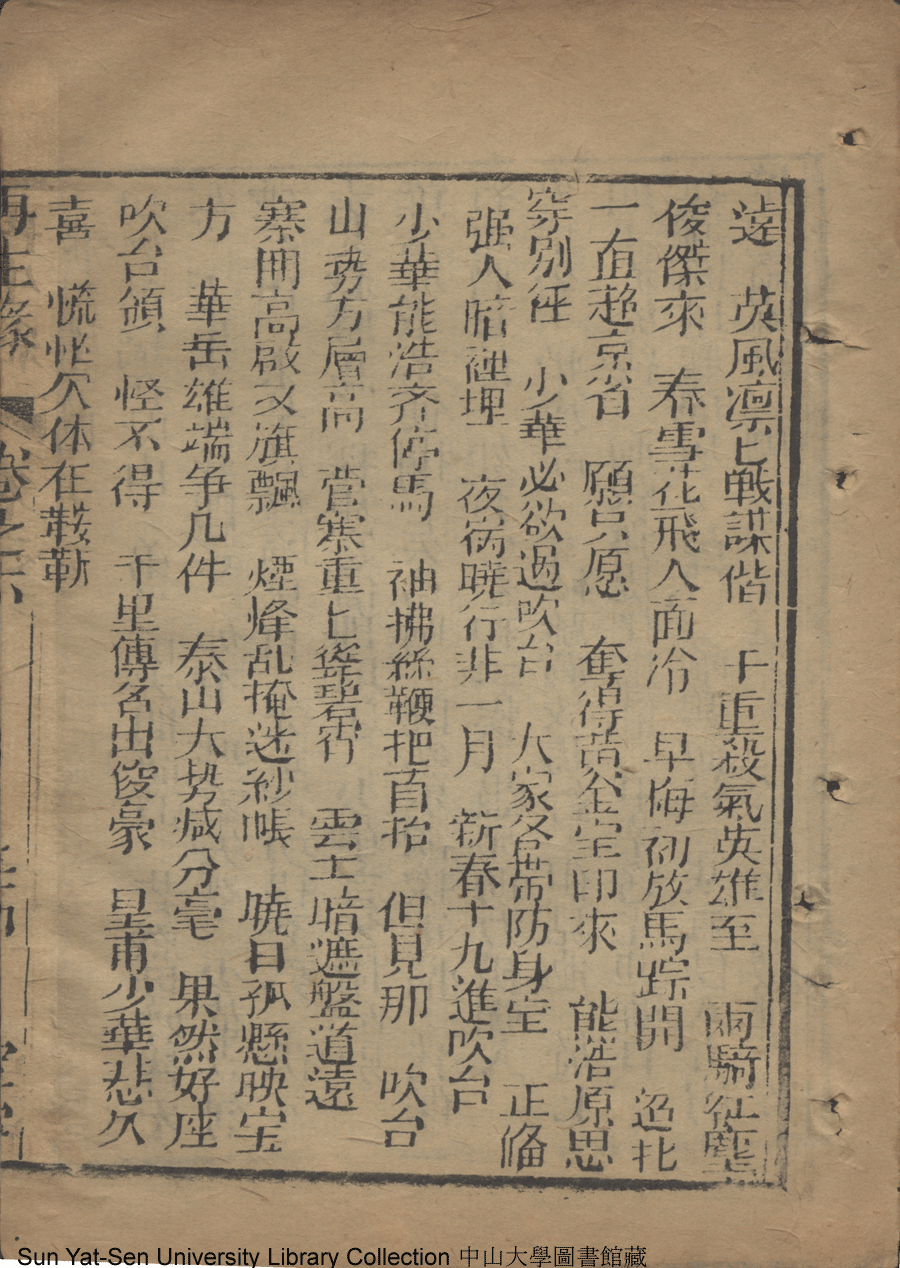 遠 英風凛匕戦謀偕 千重殺氣英雄至 兩騎征塵
俊傑來 春雪花飛人面冷 早梅初放馬踪開 迢北
一直趍京省 願只愿 奪得黄金宝印來 能浩原思
穿別徑 少華必欲過吹台 大家各帶防身宝 正俻
强人暗裡埋 夜宿曉行非一月 新春十九進吹台
少華能浩齐停馬 袖拂絲鞭把首抬 但見那 吹台
山势方層高 营寨重匕聳碧霄 雲士暗遮盤道遠
寨開高啟又旗飄 煙烽乱掩迷紗帳 曉日孤懸映宝
方 華岳雄端争几件 泰山大势减分毫 果然好座
吹台領 怪不得 千里傳名出俊豪 皇甫少華悲欠
喜 慌忙欠体在鞍勒
再生緣 卷之六